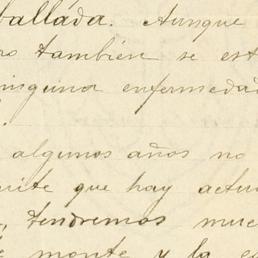 ballada. Aunque
también se est
ninguna enfermedad
algunos años no
que hay actu
, tendremos muc
monte y la